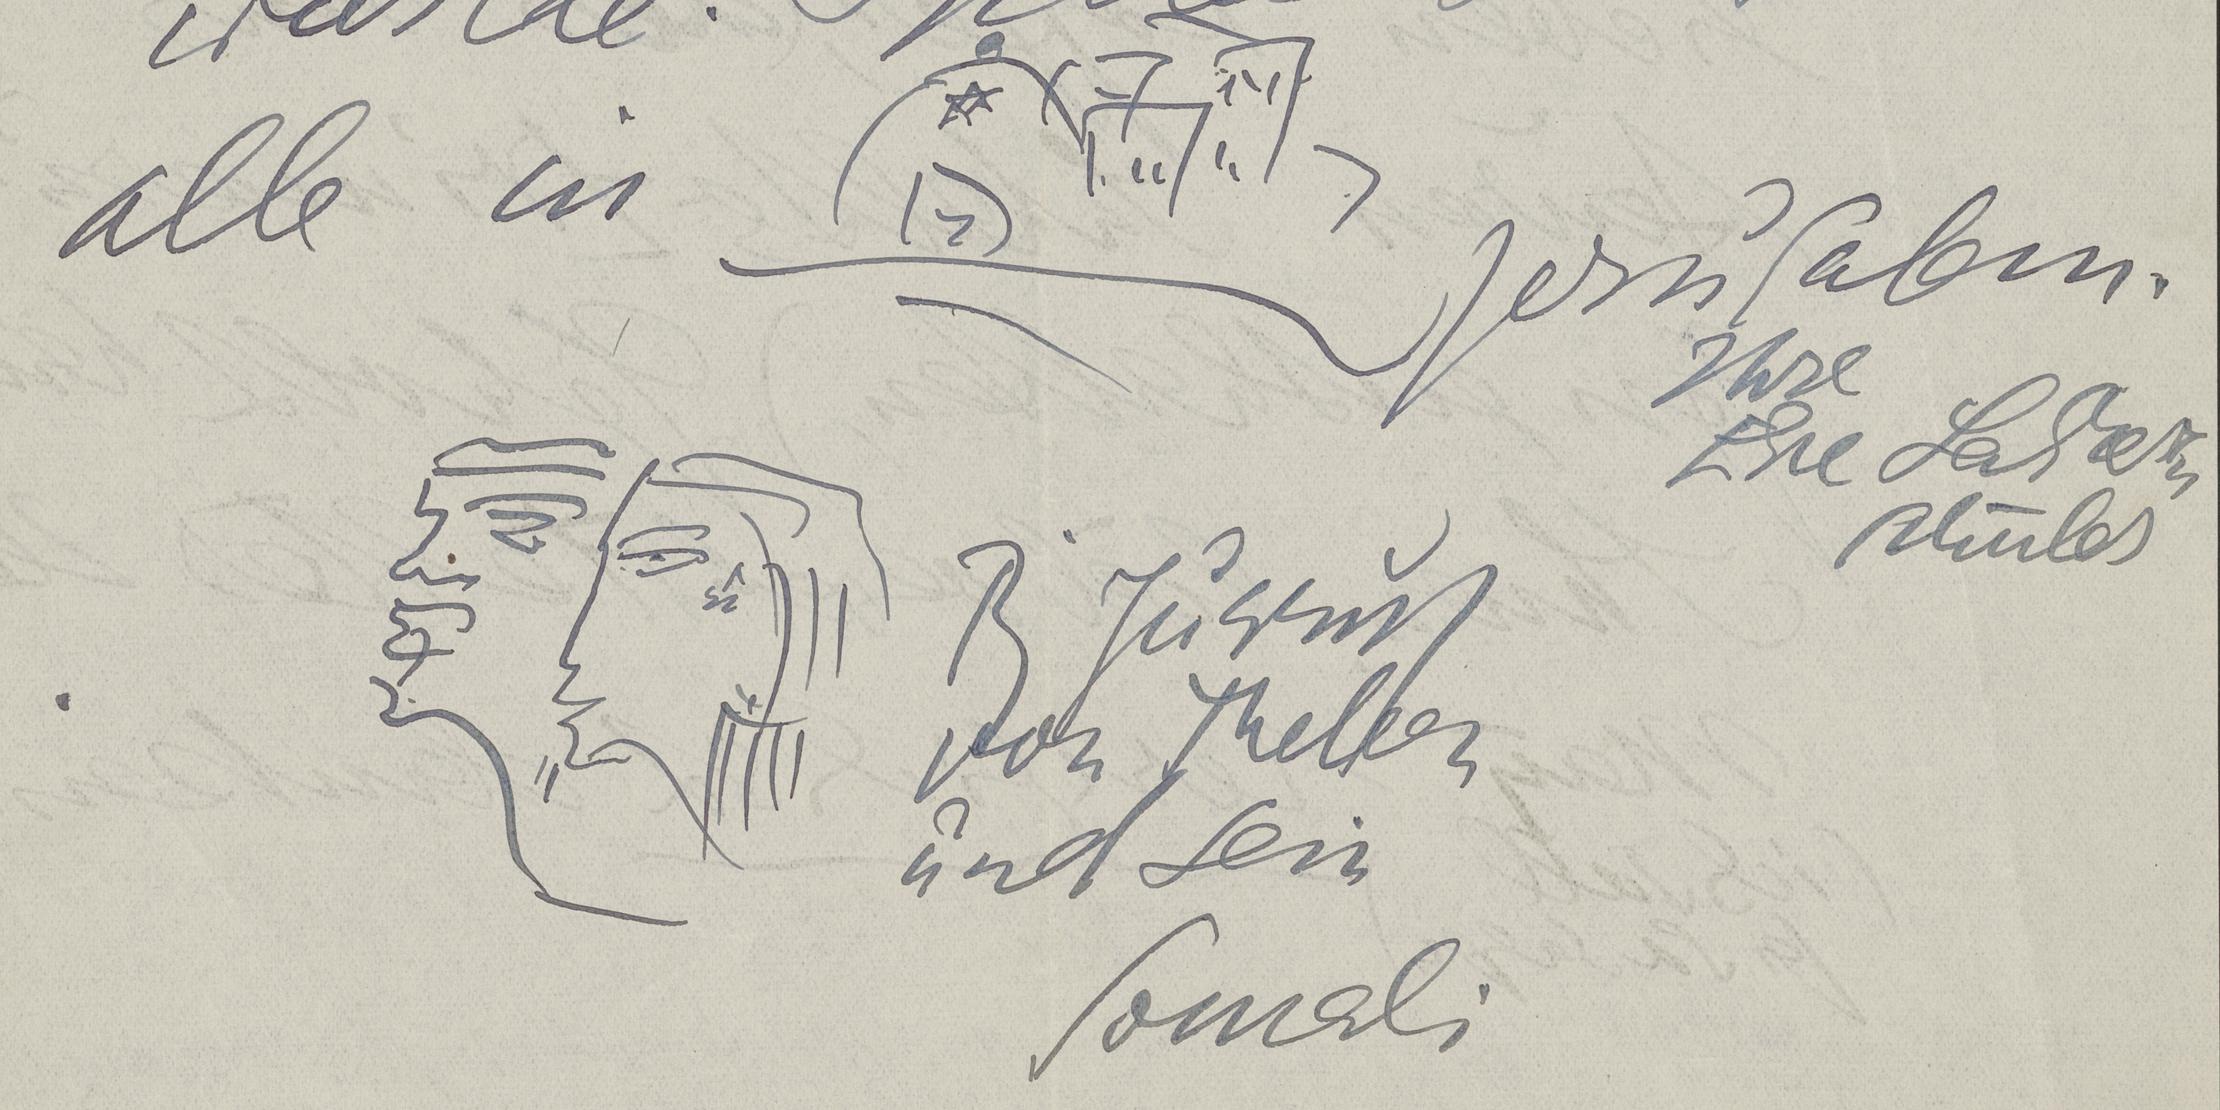 würde.
alle in
Jerusalem.
Ihre
Else Lasker
Schüler
Pz Jussuf
von Theben
und sein
Somali